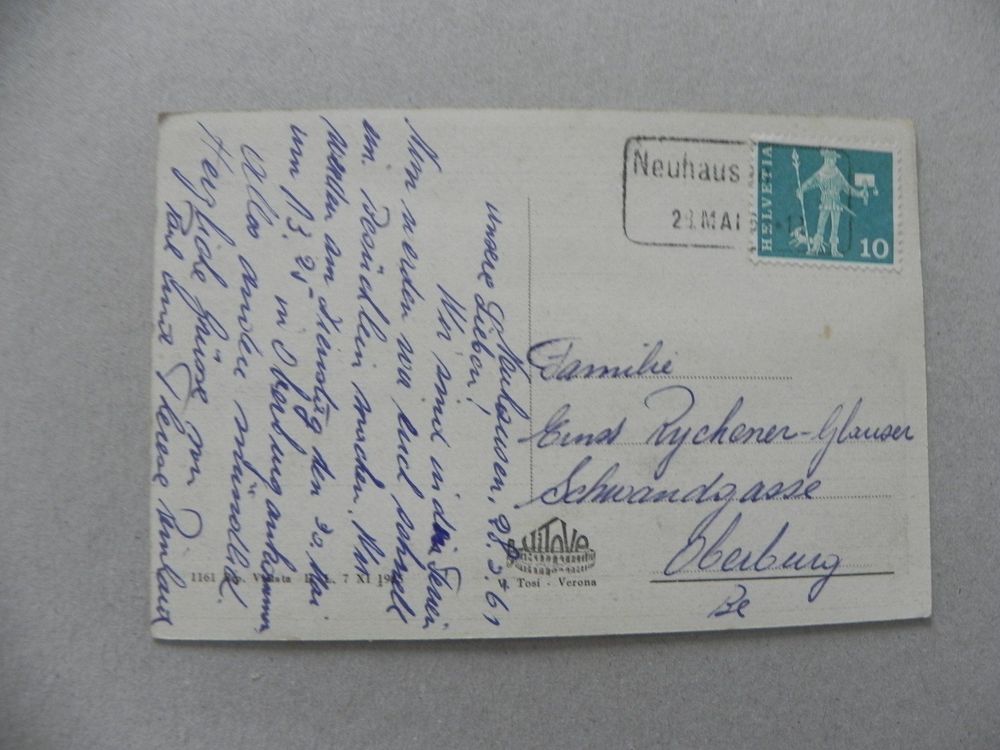 Neuhaus
28. MAI
HELVETIA
10
Neuhausen, 28.5.61
unsere Lieben!
Wir sind in den Ferien
Nun werden wir euch schnell
ein Besüchlein machen. Wir
werden am Dienstag den 30. Mai
um 13.25 in Oberburg ankommen
Alles andere mündlich.
Herzliche Grüsse von
Karl und Therese
Familie
Ernst Rychener-Glauser
Schwandgasse
Oberburg
Be
1161 7 XI
V. Tosi - Verona